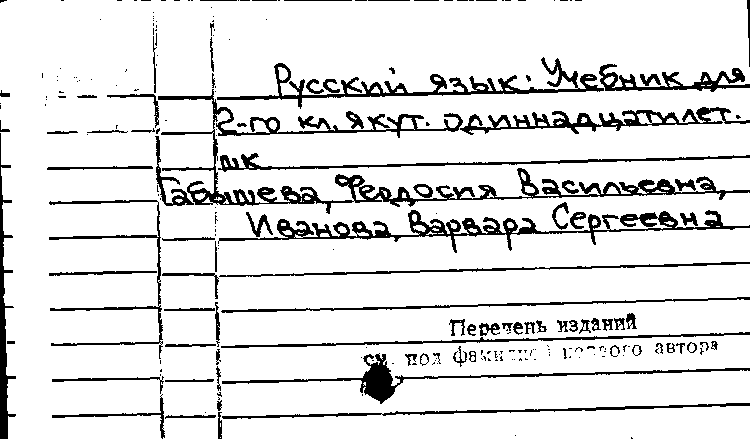 Русский язык: Учебник для
2-го кл. якут. одиннадцатилет.
шк
Габышева, Феодосия Васильевна,
Иванова, Варвара Сергеевна
Перечень изданий
см. под фамилией первого автора